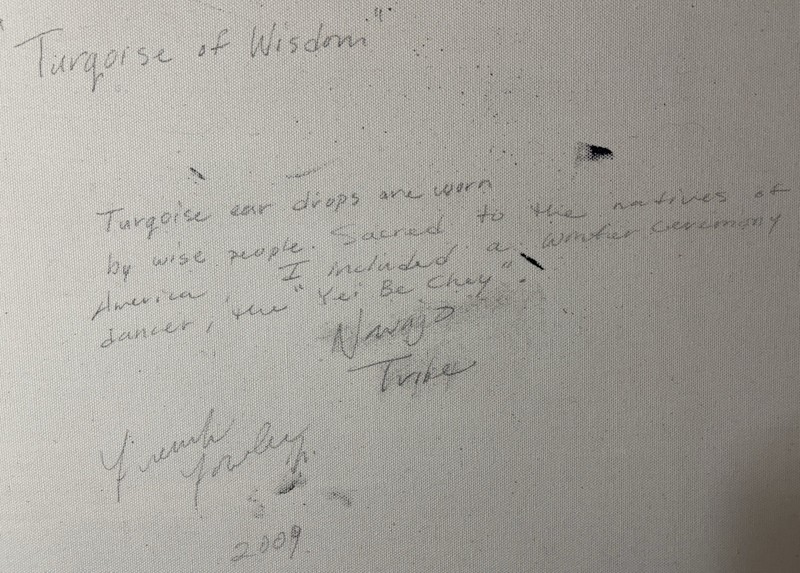 "Turqoise of Wisdom"
Turqoise ear drops are worn
by wise people. Sacred to the natives of
America. I included a winter ceremony
dancer, the "Yei Be Chey".
Navajo
Tribe
2009